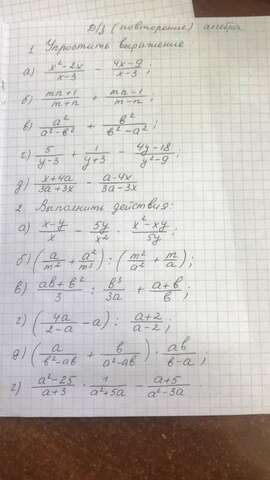 Д/з (повторение) алгебра
1. Упростить выражение
а) (x²-2x)/(x-3) - (4x-9)/(x-3);
б) (mn+1)/(m+n) + (mn-1)/(m-n);
в) a²/(a²-b²) + b²/(b²-a²);
г) 5/(y-3) + 1/(y+3) - (4y-18)/(y²-9);
д) (x+4a)/(3a+3x) - (a-4x)/(3a-3x)
2. Выполнить действия:
а) (x-y)/x - 5y/x² · (x²-xy)/5y;
б) (a/m² + a²/m³) : (m²/a² + m/a);
в) (ab+b²)/3 : b³/3a + (a+b)/b;
г) (4a/(2-a) - a) : (a+2)/(a-2);
д) (a/(b²-ab) + b/(a²-ab)) · ab/(b-a);
г) (a²-25)/(a+3) · 1/(a²+5a) - (a+5)/(a²-3a)